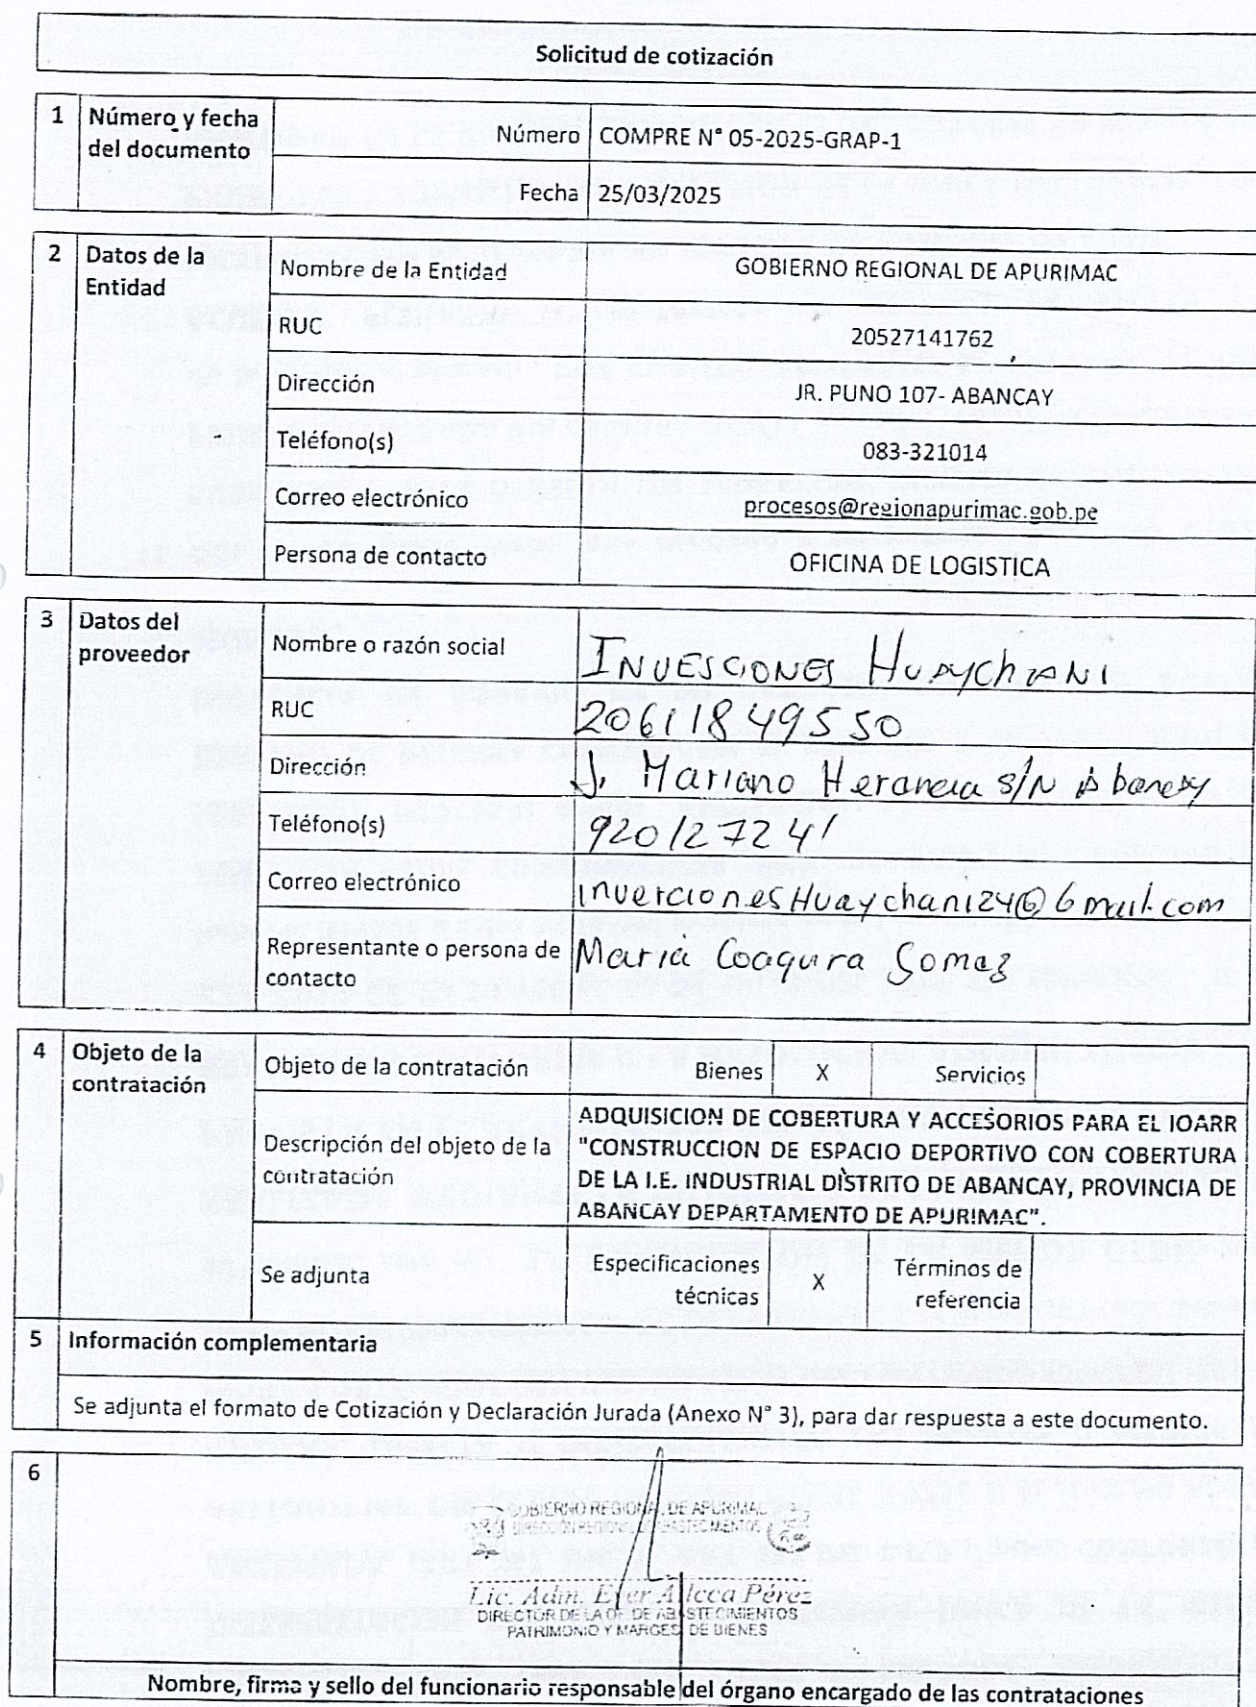 Solicitud de cotización
1 Número y fecha del documento
Número COMPRE N° 05-2025-GRAP-1
Fecha 25/03/2025
2 Datos de la Entidad
Nombre de la Entidad GOBIERNO REGIONAL DE APURIMAC
RUC 20527141762
Dirección JR. PUNO 107- ABANCAY
Teléfono(s) 083-321014
Correo electrónico procesos@regionapurimac.gob.pe
Persona de contacto OFICINA DE LOGISTICA
3 Datos del proveedor
Nombre o razón social INVESCIONES HUAYCHANI
RUC 20611849550
Dirección J. Mariano S/N
Teléfono(s) 920127241
Correo electrónico inverciones Huaychani24@Gmail.com
Representante o persona de contacto Maria Coaqura Gomez
4 Objeto de la contratación
Objeto de la contratación Bienes X Servicios
Descripción del objeto de la contratación
ADQUISICION DE COBERTURA Y ACCESORIOS PARA EL IOARR
"CONSTRUCCION DE ESPACIO DEPORTIVO CON COBERTURA
DE LA I.E. INDUSTRIAL DISTRITO DE ABANCAY, PROVINCIA DE
ABANCAY DEPARTAMENTO DE APURIMAC".
Se adjunta Especificaciones técnicas X Términos de referencia
5 Información complementaria
Se adjunta el formato de Cotización y Declaración Jurada (Anexo N° 3), para dar respuesta a este documento.
6
GOBIERNO REGIONAL DE APURIMAC
DIRECCIÓN REGIONAL DE ABASTECIMIENTOS
Lic. Adm. Pérez
DIRECTOR DE LA OF DE ABASTECIMIENTOS
PATRIMONIO Y MARGESI DE BIENES
Nombre, firma y sello del funcionario responsable del órgano encargado de las contrataciones